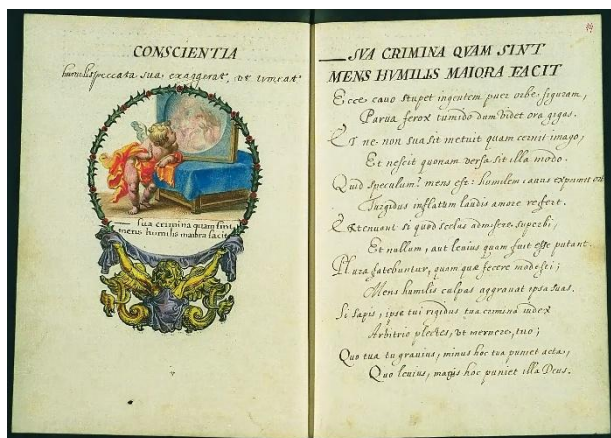 CONSCIENTIA
humilis peccata sua exaggerat, ut
sua crimina quam sint
mens humilis maiora facit
SVA CRIMINA QVAM SINT
MENS HVMILIS MAIORA FACIT
Ecce cavo stupet ingentem puer orbe figuram,
Parva ferox tumido dum videt ora gigas.
Et ne non sua sit metuit quam cernit imago,
Et nescit quonam versa sit illa modo.
Quid speculum? mens est: humilem cavus exprimit
Turgidus inflatum laudis amore refert.
Extenuant si quod scelus admisere superbi,
Et nullum, aut levius quam fuit esse putant.
Plura fatebuntur, quam quae fecere modesti;
Mens humilis culpas aggravat ipsa suas.
Si sapis, ipse tui rigidus tua crimina iudex
Arbitrio plectes, ut meruere, tuo;
Quo tua tu gravius, minus hoc tua puniet acta,
Quo levius, magis hoc puniet illa Deus.